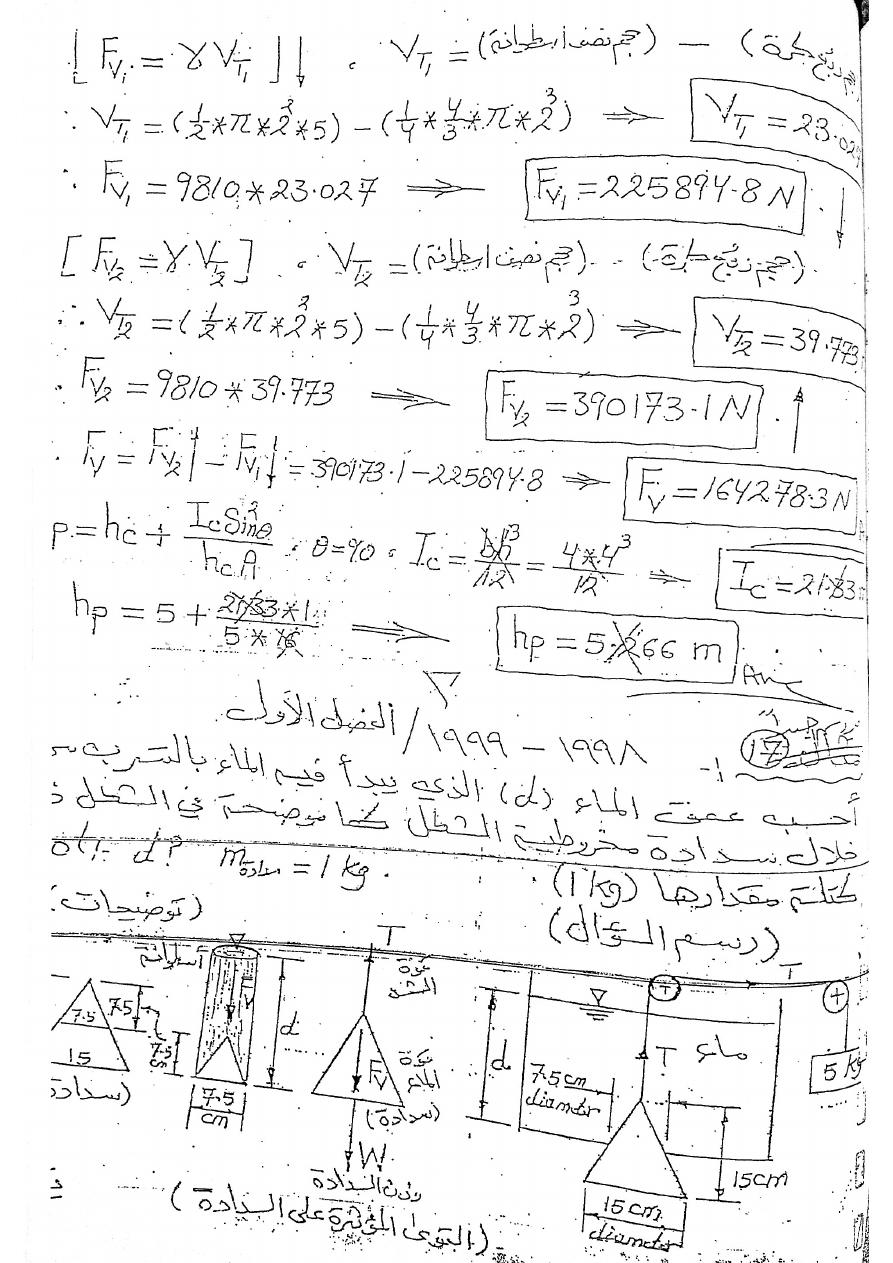 [ Fv₁ = γ V_T₁ ]↓ ، V_T₁ = (حجم نصف اسطوانة) − (حجم ربع كرة)
∴ V_T₁ = (1/2 * π * 2² * 5) − (1/4 * 4/3 * π * 2³) ⟹ V_T₁ = 23.027
∴ Fv₁ = 9810 * 23.027 ⟹ Fv₁ = 225894.8 N ↓
[ Fv₂ = γ V_T₂ ] ، V_T₂ = (حجم نصف اسطوانة) − (حجم ربع كرة)
∴ V_T₂ = (1/2 * π * 2² * 5) − (1/4 * 4/3 * π * 2³) ⟹ V_T₂ = 39.773
∴ Fv₂ = 9810 * 39.773 ⟹ Fv₂ = 390173.1 N ↑
∴ Fv = Fv₂↑ − Fv₁↓ = 390173.1 − 225894.8 ⟹ Fv = 164278.3 N
p = hc + Ic Sin²θ / hc A ، θ = 90 ، Ic = bh³/12 = 4*4³/12 ⟹ Ic = 21.33
hp = 5 + 21.33*1 / 5*16 ⟹ hp = 5.266 m
Ans
17
١٩٩٨ – ١٩٩٩ / الفصل الأول
١- أحسب عمق الماء (d) الذي يبدأ فيه الماء بالتسرب
خلال سدادة مخروطية الشكل كما موضحة في الشكل
كتلتة مقدارها (1 kg) m سدادة = 1 kg . d?
(رسم السؤال) (توضيحات
T T
ماء
T
d
7.5 cm
diameter
5 kg
15 cm
15 cm
diameter
T
قوة الشد
قوة الماء
Fv
(سدادة)
W
وزن السدادة
(القوى المؤثرة على السدادة)
أسطوانة
Fv
d
7.5
cm
7.5
cm
7.5
7.5
15
(سدادة)